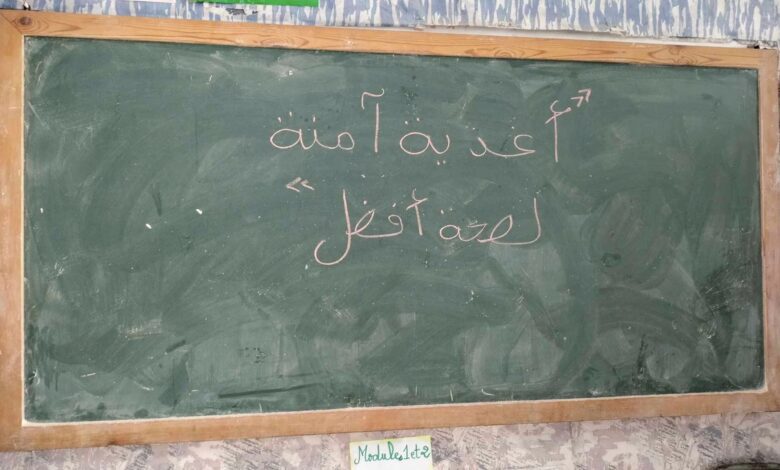 "أغذية آمنة
لصحة أفضل"
Module 1 et 2